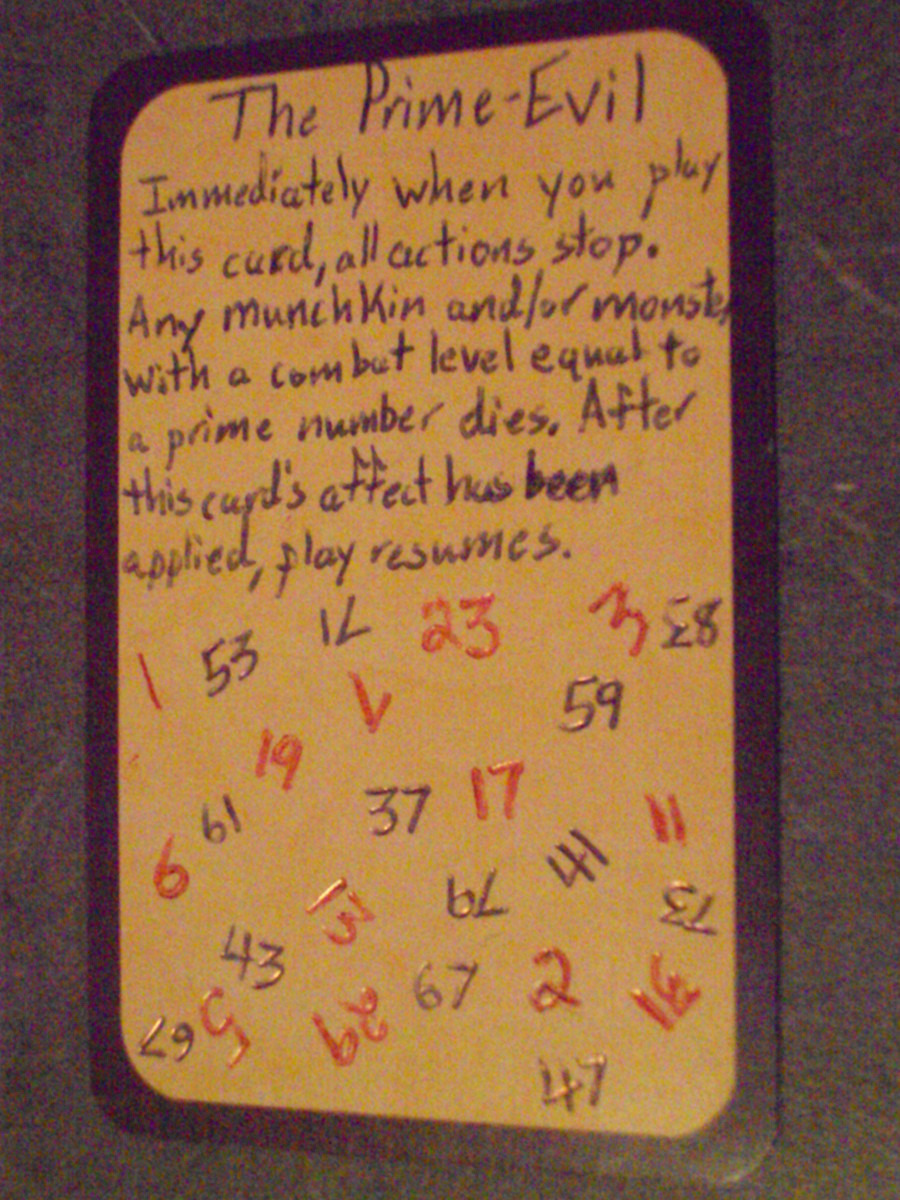 The Prime-Evil
Immediately when you play
this card, all actions stop.
Any munchkin and/or monster
with a combat level equal to
a prime number dies. After
this card's affect has been
applied, play resumes.
1 53 71 23 3 83
7 59
19
61 37 17 11
6 41
13 79 73
43 67 2 31
67 5 29
47